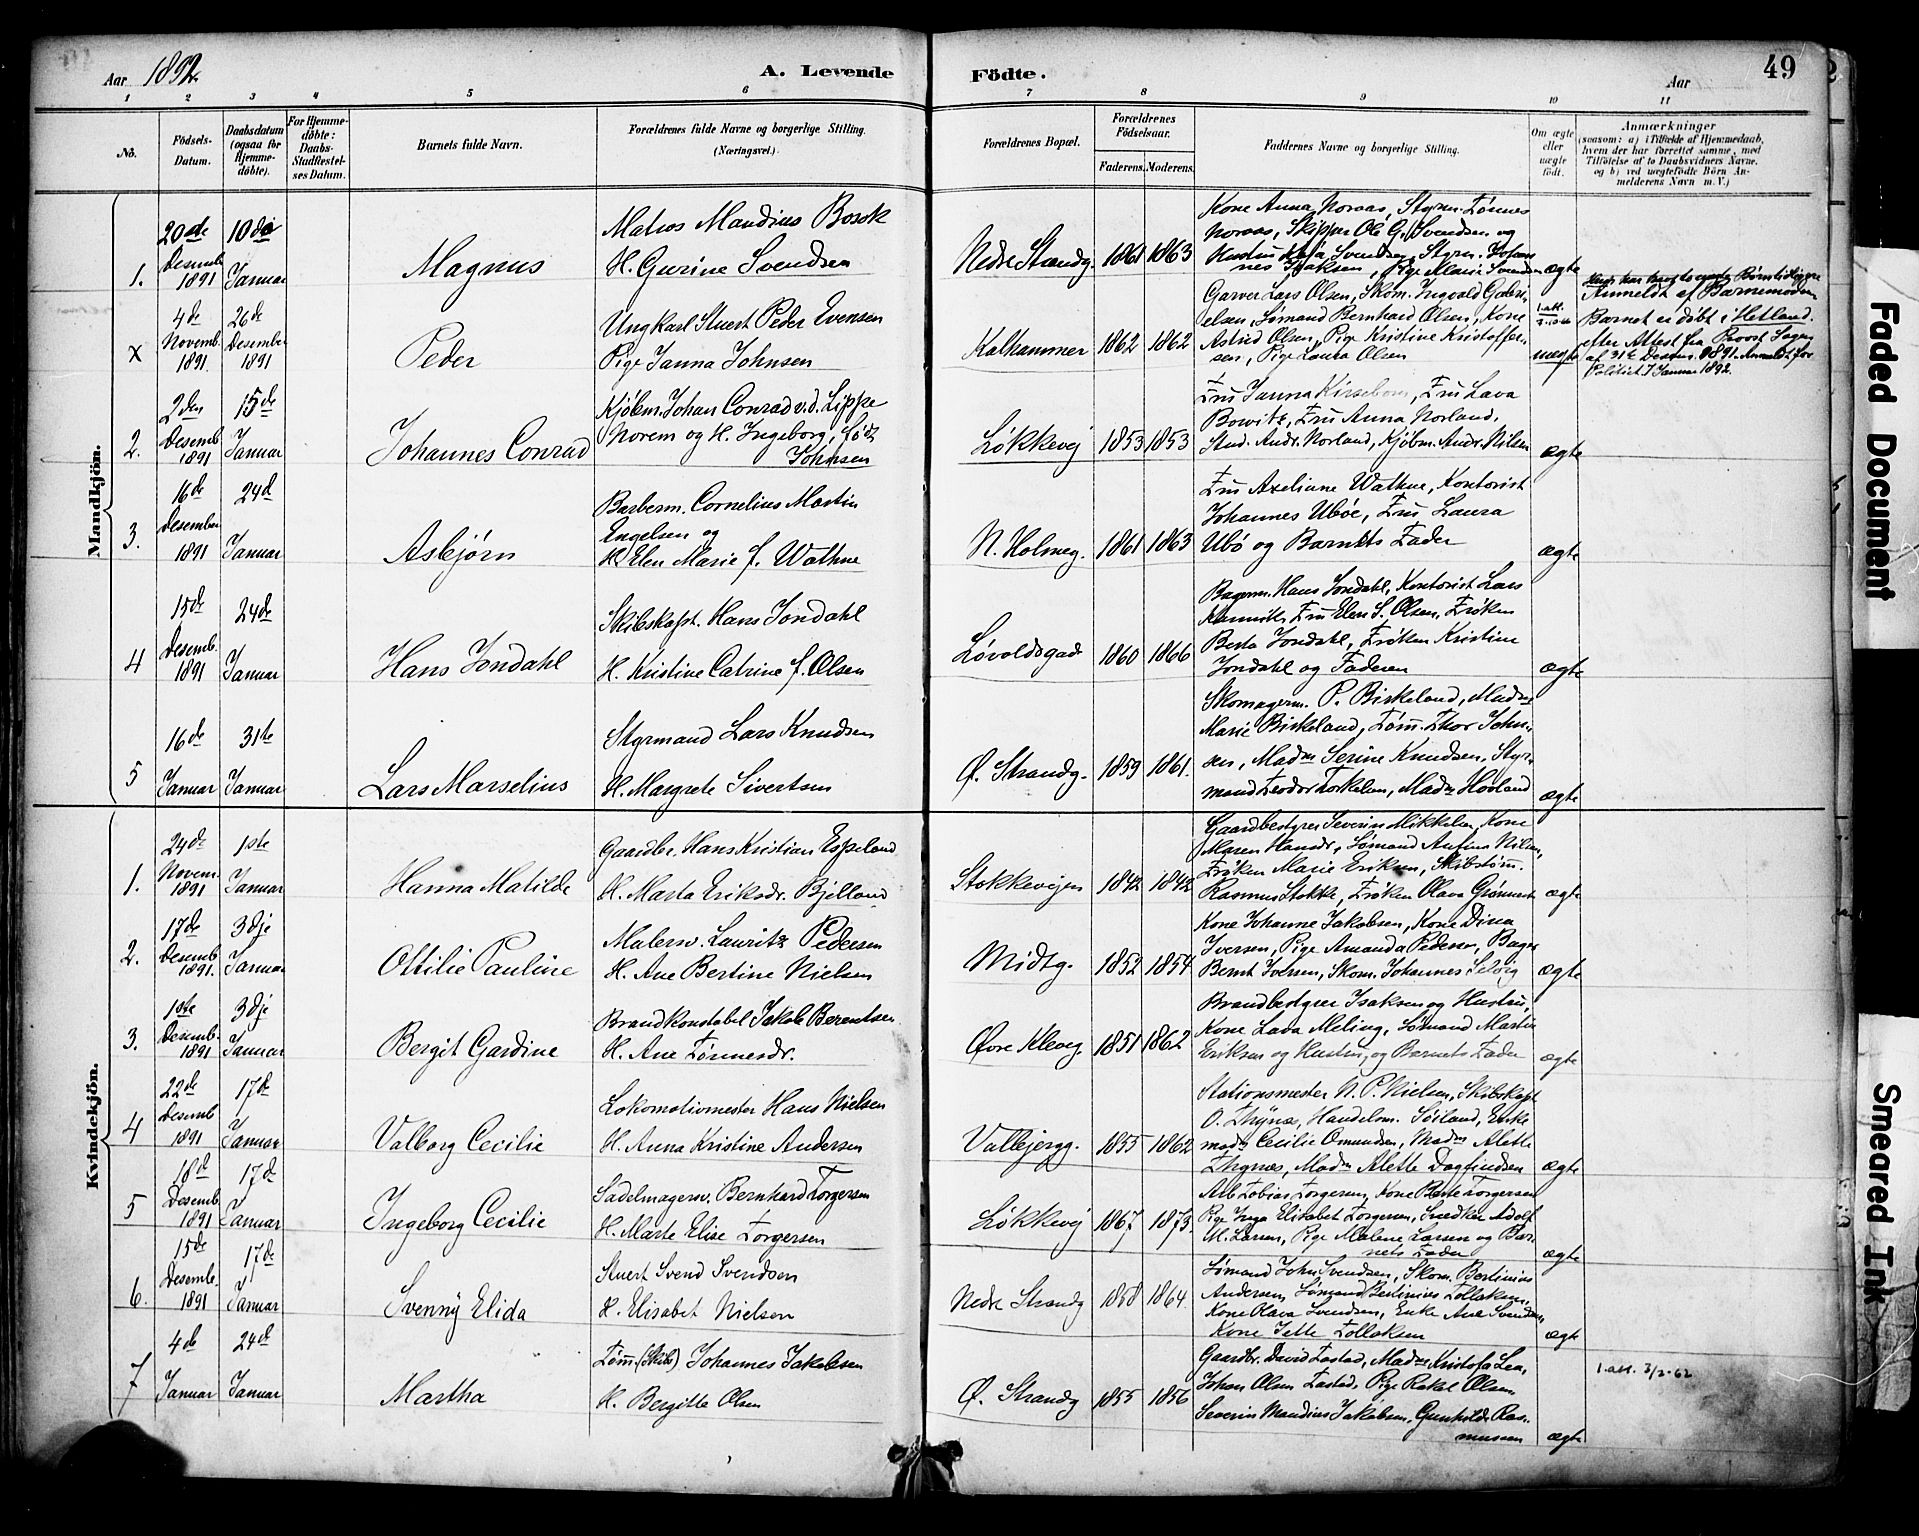 Aar 1892.
A. Levende
Födte.
Aar
49
1 2 3 4 5 6 7 8 9 10 11
No.
Födsels-Datum.
Daabsdatum (ogsaa för Hjemmedöbte).
For Hjemmedöbte: Daabs-Stadfæstelses Datum.
Barnets fulde Navn.
Forældrenes fulde Navne og borgerlige Stilling.
(Næringsvei.)
Forældrenes Bopæl.
Forældrenes Födselsaar.
Faderens. Moderens.
Faddernes Navne og borgerlige Stilling.
Om ægte eller uægte födt.
Anmærkninger
(saasom: a) i Tilfælde af Hjemmedaab, hvem der har forrettet samme, med Tilföielse af to Daabsvidners Navne, og b) ved uægtefödte Börn Anmelderens Navn m. V.)
Mandkjön.
1.
20de Desemb. 1891
10de Januar
Magnus
Matros Maudius Bosok
H. Gurine Svendsen
Nedre Strandg.
1861 1863
Kone Anna Noraas, Styrm. Tønnes
Noraas, Skipper Ole G. Svendsen og
Styrm. Johannes Isaksen, Pige Marie Svendsen
ægte
x
4de Novemb. 1891
26de Desember 1891
Peder
Ungkarl Stuert Peder Evensen
Pige Janna Johnsen
Kalhammer
1862 1862
Garver Lars Olsen, Skom. Ingvald Gabri-
elsen, Sømand Bernhard Olsen, Kone
Astrid Olsen, Pige Kristine Kristoffer-
sen, Pige Laura Olsen
1. att.
uægte
Anmeldt af Barnemoderen
Barnet er døbt i Hetland.
efter Attest fra Provst
af 31te Desem. 1891. Anmeldt for
Politiet 7 Januar 1892.
2.
2den Desemb. 1891
15de Januar
Johannes Conrad
Kjøbm. Johan Conrad v.d. Lippe
Norem og H. Ingeborg, født
Johnsen
Løkkevej
1853 1853
Fru Janna Kirsebom, Fru Lava
Bowitz, Fru Anna Norland,
Stud. Andr. Norland, Kjøbm. Andr. Nilsen
ægte
3.
16de Desember 1891
24d Januar
Asbjørn
Barberm. Cornelius Martin
Engelsen og
H. Elen Marie f. Wathne
N. Holmeg.
1861 1863
Fru Axeliane Wathne, Kontorist
Johannes Ubøe, Fru Laura
Ubø og Barnets Fader
ægte
4
15de Desemb. 1891
24de Januar
Hans Jondahl
Skibskapt. Hans Jondahl
H. Kristine Catrine f. Olsen
Løvoldsgad
1860 1866
Bagerm. Hans Jondahl, Kontorist Lars
Fru Elen S. Olsen, Frøken
Berta Jondahl, Frøken Kristine
Jondahl og Faderen
ægte
5
16de Januar
31te Januar
Lars Marselius
Styrmand Lars Knudsen
H. Margrete Sivertsen
Ø. Strandg.
1859 1861.
Skomagerm. P. Birkeland, Madm
Marie Birkeland, Tøm. Thor John-
sen, Madm Serine Knudsen, Styr-
mand Teodor Torkelsen, Madm Hovland
ægte
Kvindekjön.
1.
24de Novem. 1891
1ste Januar
Hanna Matilde
Gaardbr. Hans Kristian Espeland
H. Marta Eriksdr. Bjelland
Stokkevejen
1842 1842
Gaardbestyrer Severin Mikkelsen, Kone
Maren Hansdr, Sømand Nilsen,
Frøken Marie Eriksen, Skibstøm.
Rasmus Stokke, Frøken Olava
ægte
2.
17de Desemb 1891.
3dje Januar
Ottilie Pauline
Malersv. Lauritz Pedersen
H. Ane Bertine Nielsen
Midtg.
1852 1854
Kone Johanne Jakobsen, Kone Dina
Iversen, Pige Amanda Pedersen, Bager
Bernt Iversen, Skom. Johannes Selvig
ægte
3.
1ste Desemb. 1891
3dje Januar
Bergit Gardine
Brandkonstabel Jakob Berentsen
H. Ane Tønnesdr.
Øvre Klevg.
1851 1862
Brandbestyrer Isaksen og Hustru,
Kone Lava Meling, Sømand Martin
Eriksen og Hustru, og Barnets Fader
ægte
4
22de Desemb 1891
17de Januar
Valborg Cecilie
Lokomotivmester Hans Nielsen
H. Anna Kristine Andersen
Valbjergg.
1855 1862
Stationsmester N. P. Nielsen, Skibskapt
O. Thynæs, Handelsm. Søiland, Enke
madm Cecilie Omundsen, Madm Alette
Thynæs, Madm Alette Dagfindsen
ægte
5
18d Desemb. 1891
17d Januar
Ingeborg Cecilie
Sadelmagersv. Bernhard Torgersen
H. Marte Elise Torgersen
Løkkevej
1867 1873.
Arb Tobias Torgersen, Kone Berte Torgersen
Pige Inga Elisabet Torgersen, Snedker Adolf
M. Larsen, Pige Malene Larsen og Bar-
nets Fader
ægte
6.
15de Desemb. 1891
17de Januar
Svenny Elida
Stuert Svend Svendsen
H. Elisabet Nielsen
Nedre Strandg
1858 1864.
Sømand John Svendsen, Skom. Bertinius
Andersen, Sømand Bertinius Tollaksen,
Kone Olava Svendsen, Enke Ane Svendsen,
Kone Jette Tollaksen
ægte
7
4de Januar
24de Januar
Martha
Tømm. (Skibs) Johannes Jakobsen
H. Bergitte Olsen
Ø. Strandg
1855 1856
Gaardbr. David Tastad, Madm Kristofa Lea,
Johan Olsen Tastad, Pige Rakel Olsen
Severin Maudius Jakobsen, Gunhild Ras-
mussen
ægte
1. att. 3/2-62
Faded Document
Smeared Ink